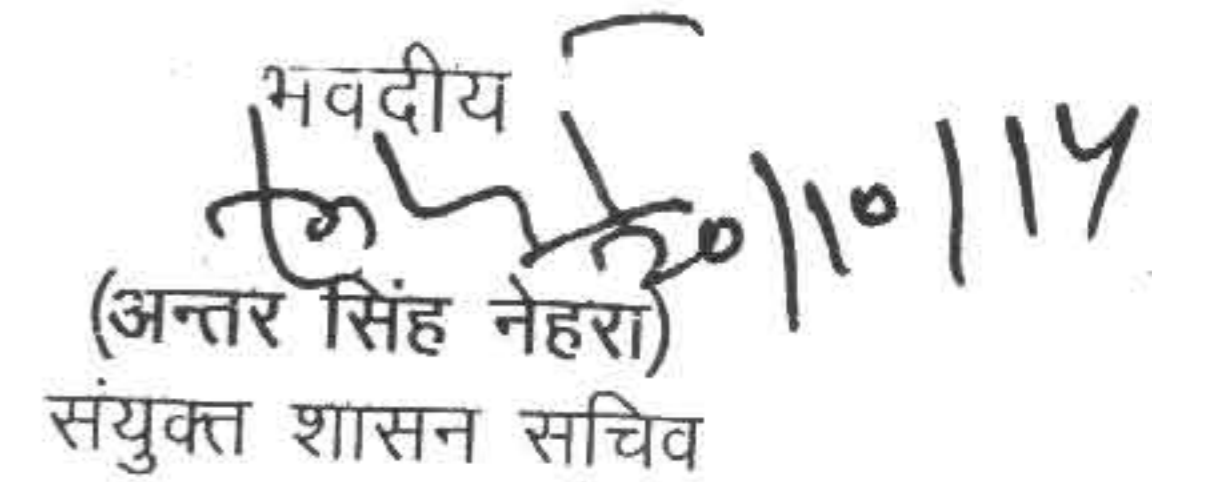 भवदीय
20/10/14
(अन्तर सिंह नेहरा)
संयुक्त शासन सचिव